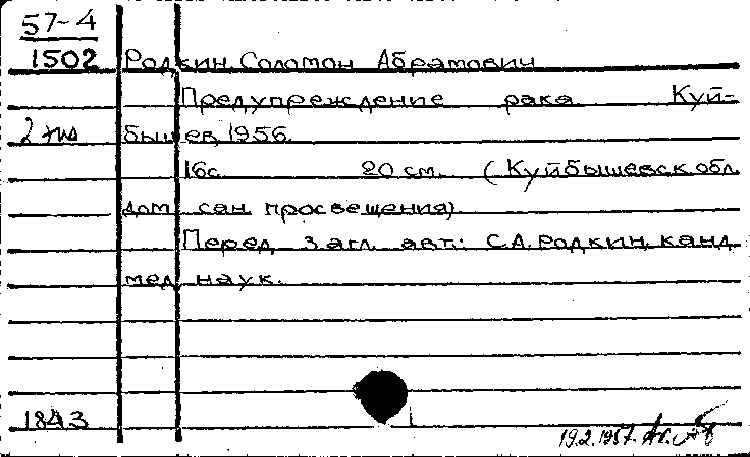 57-4
1502 Родкин, Соломон Абрамович
Предупреждение рака. Куй-
2 экз бышев, 1956.
16с. 20 см. (Куйбышевск. обл.
дом сан. просвещения)
Перед загл. авт.: С.А. Родкин, канд.
мед. наук.
1843
19.2.1957.